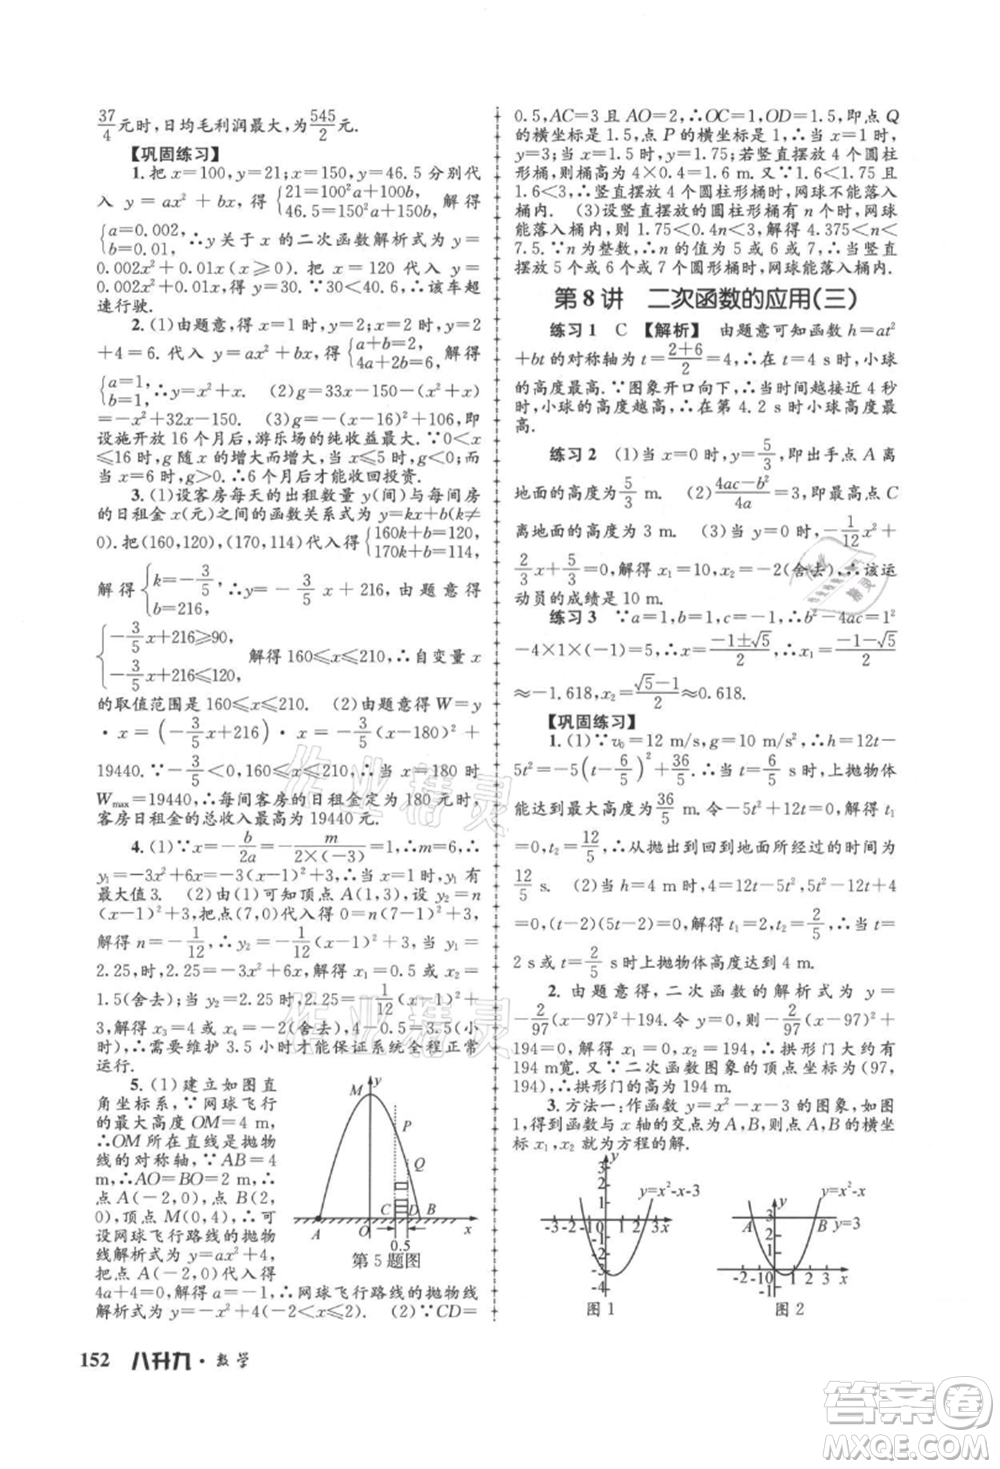 37/4元时,日均毛利润最大,为545/2元.
【巩固练习】
1. 把 x=100,y=21;x=150,y=46.5 分别代
入 y=ax²+bx,得{21=100²a+100b, 46.5=150²a+150b,解得
{a=0.002, b=0.01.∴y 关于 x 的二次函数解析式为 y=
0.002x²+0.01x(x⩾0). 把 x=120 代入 y=
0.002x²+0.01x,得 y=30. ∵30<46.5,∴该车超
速行驶.
2. (1)由题意,得当 x=1 时,y=2;当 x=2 时,y=2
+4=6. 代入 y=ax²+bx,得{a+b=2, 4a+2b=6.解得
{a=1, b=1.∴y=x²+x. (2)g=33x-150-y,g=
-x²+32x-150. (3)g=-(x-16)²+106,即
设施开放 16 个月后,游乐场的纯收益最大.∵0<x
⩽16 时,g 随 x 的增大而增大,当 x⩽5 时,g<0;而
当 x=6 时,g>0.∴6 个月后才能收回投资.
3. (1)设客房每天的出租数量 y(间)与每间房
的日租金 x(元)之间的函数关系式为 y=kx+b(k≠
0). 把(160,120),(170,114)代入得{160k+b=120, 170k+b=114,
解得{k=-3/5, b=216.∴y=-3/5x+216,由题意得
{-3/5x+216⩾90, -3/5x+216⩽120.解得 160⩽x⩽210,∴自变量 x
的取值范围是 160⩽x⩽210. (2)由题意得 W=y
·x=(-3/5x+216)·x=-3/5(x-180)²+
19440. ∵-3/5<0,160⩽x⩽210,∴当 x=180 时,
Wmax=19440,∴每间客房的日租金定为 180 元时,
客房日租金的总收入最高为 19440 元.
4. (1)∵x=-b/2a=-m/2×(-3)=1,∴m=6,∴
y₁=-3x²+6x=-3(x-1)²+3,当 x=1 时,y₁有
最大值3. (2)由(1)可知顶点 A(1,3),设 y₂=n
(x-1)²+3,把点(7,0)代入得 n(7-1)²+3=0,
解得 n=-1/12,∴y₂=-1/12(x-1)²+3. 当 y₁=
2.25,时,-3(x-1)²+3=2.25,解得 x₁=0.5,x₂=
1.5(舍去);当 y₂=2.25 时,-1/12(x-1)²+3=
2.25,解得 x₃=4 或 x₄=-2(舍去). 4-0.5=3.5(小
时),∴需要维护 3.5 小时才能保证系统全程正常
运行.
5. (1)建立如图直
角坐标系,∵网球飞行
的最大高度 OM=4 m,
∴OM所在直线是抛物
线的对称轴,∵AB=4
m,∴AO=BO=2 m,∴
点 A(-2,0),点 B(2,
0),顶点 M(0,4),∴可
设网球飞行路线的抛物
线解析式为 y=ax²+4,
把点 A(-2,0)代入得
4a+4=0,解得 a=-1,∴网球飞行路线的抛物线
解析式为 y=-x²+4(-2⩽x⩽2). (2)∵CD=
M
y
P
Q
C
D
B
A
O
x
0.5
第 5 题图
0.5,AC=3 且 AO=2,∴OC=1,OD=1.5,即点 Q
的横坐标是 1.5,点 P 的横坐标为 1,当 x=1 时,y=
3;当 x=1.5 时,y=1.75;若竖直摆放 4 个圆柱
形桶时,则桶高为 4×0.4=1.6 m. ∵1.6<1.75 且
1.6<3,∴竖直摆放 4 个圆柱形桶时,网球不能落入
桶内. (3)设竖直摆放的圆柱形桶有 n 个时,网球
能落入桶内,则 1.75<0.4n<3,解得 4.375<n<
7.5.∵n 为整数,∴n 的值为 5 或 6 或 7,∴当竖直
摆放 5 或 6 或 7 个圆形桶时,网球能落入桶内.
第 8 讲 二次函数的应用(三)
练习 1 C 【解析】 由题意可知函数 h=at²
+bt 的对称轴为 t=2+6/2=4,∴在 t=4 s 时,小球
的高度最高.∵图象开口向下,当时间越接近 4 秒
时,小球的高度越高,∴在第 4.2 s 时小球的高度最
高.
练习 2 (1)当 x=0 时,y=5/3,即出手点 A 离
地面的高度为5/3 m. (2)4ac-b²/4a=3,即最高点 C
离地面的高度为 3 m. (3)当 y=0 时,-1/12x²+
2/3x+5/3=0,解得 x₁=10,x₂=-2(舍去),∴该运
动员的成绩是 10 m.
练习 3 ∵a=1,b=1,c=-1,∴b²-4ac=1²
-4×1×(-1)=5,∴x=-1±√5/2,∴x₁=-1-√5/2
≈-1.618,x₂=√5-1/2≈0.618.
【巩固练习】
1. (1)∵v₀=12 m/s,g=10 m/s²,∴h=12t-
5t²=-5(t-6/5)²+36/5,∴当 t=6/5 s 时,上抛物体所
能达到最大高度为36/5 m. 令-5t²+12t=0,解得 t₁
=0,t₂=12/5,∴从抛出到回到地面所经过的时间为
12/5 s. (2)当 h=4 时,4=12t-5t²,即 5t²-12t+4
=0,(t-2)(5t-2)=0,解得 t₁=2,t₂=2/5,∴当 t=
2 s 或2/5 s时上抛物体高度达到 4 m.
2. 由题意得,二次函数的解析式为 y=
-2/97(x-97)²+194. 令 y=0,得-2/97(x-97)²+
194=0,解得 x₁=0,x₂=194,∴拱形门大约有
194 m宽.又∵二次函数图象的顶点坐标为(97,
194),∴拱形门的最高处有 194 m.
3. 方法一:作函数 y=x²-x-3 的图象,如图
1,得到函数与 x 轴的交点为 A,B,则点 A,B 的横坐
标 x₁,x₂ 就为方程的解.
y=x²-x-3
图 1
y=x²-x
y=3
A
B
图 2
152 八升九·数学
作业精灵
作业精灵
答案圈
MXQE.COM